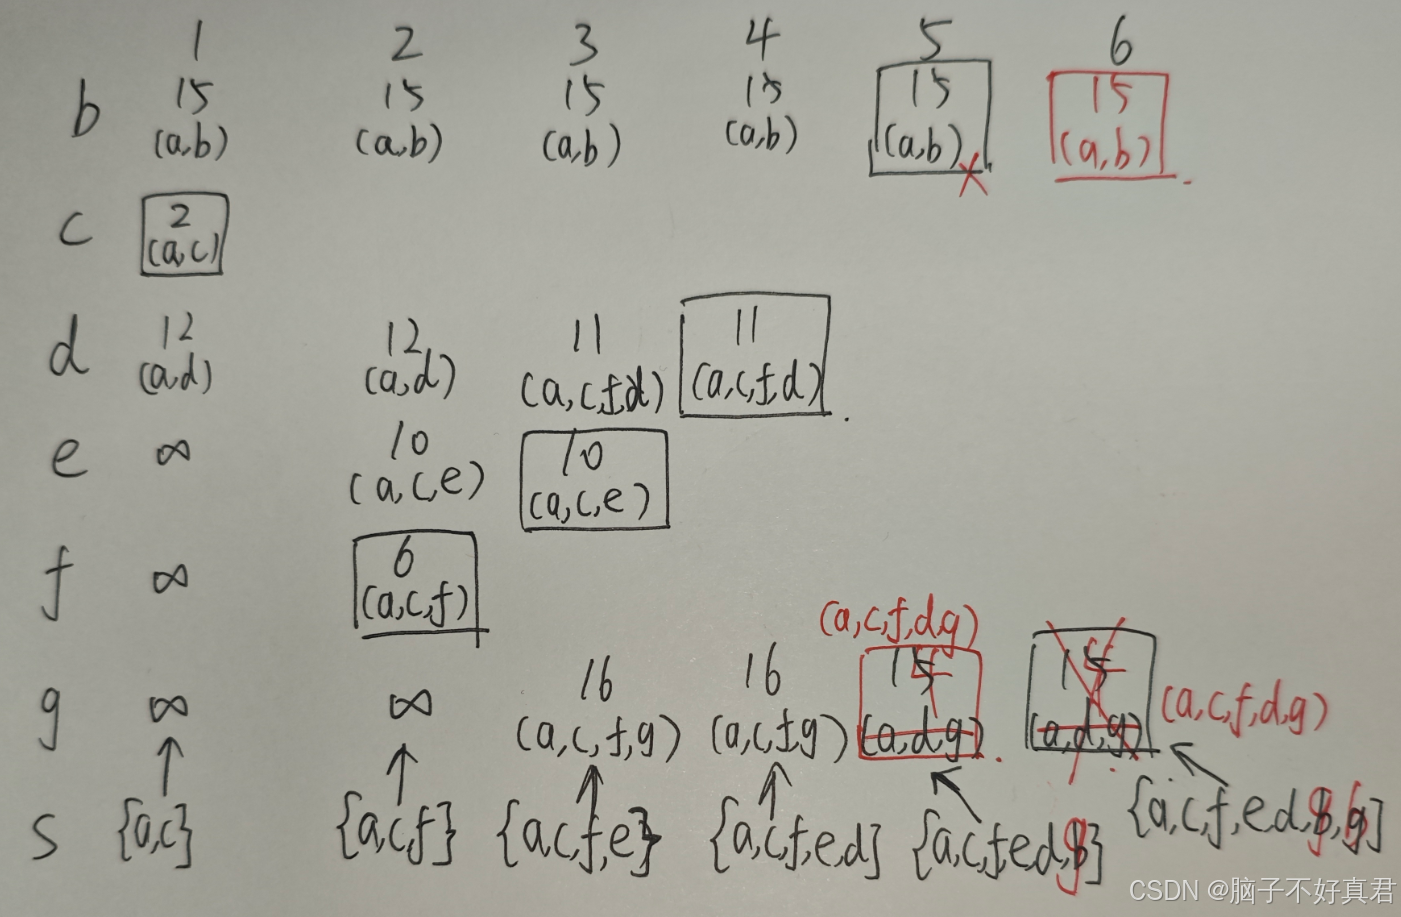 1 2 3 4 5 6
b 15 15 15 15 15 15
(a,b) (a,b) (a,b) (a,b) (a,b) x (a,b)
c 2
(a,c)
d 12 12 11 11
(a,d) (a,d) (a,c,f,d) (a,c,f,d)
e ∞ 10 10
(a,c,e) (a,c,e)
f ∞ 6
(a,c,f)
(a,c,f,d,g)
g ∞ ∞ 16 16 15 15
(a,c,f,g) (a,c,f,g) (a,d,g) (a,d,g) (a,c,f,d,g)
s {a,c} {a,c,f} {a,c,f,e} {a,c,f,e,d} {a,c,f,e,d,g} {a,c,f,e,d,g,b}
CSDN @脑子不好真君